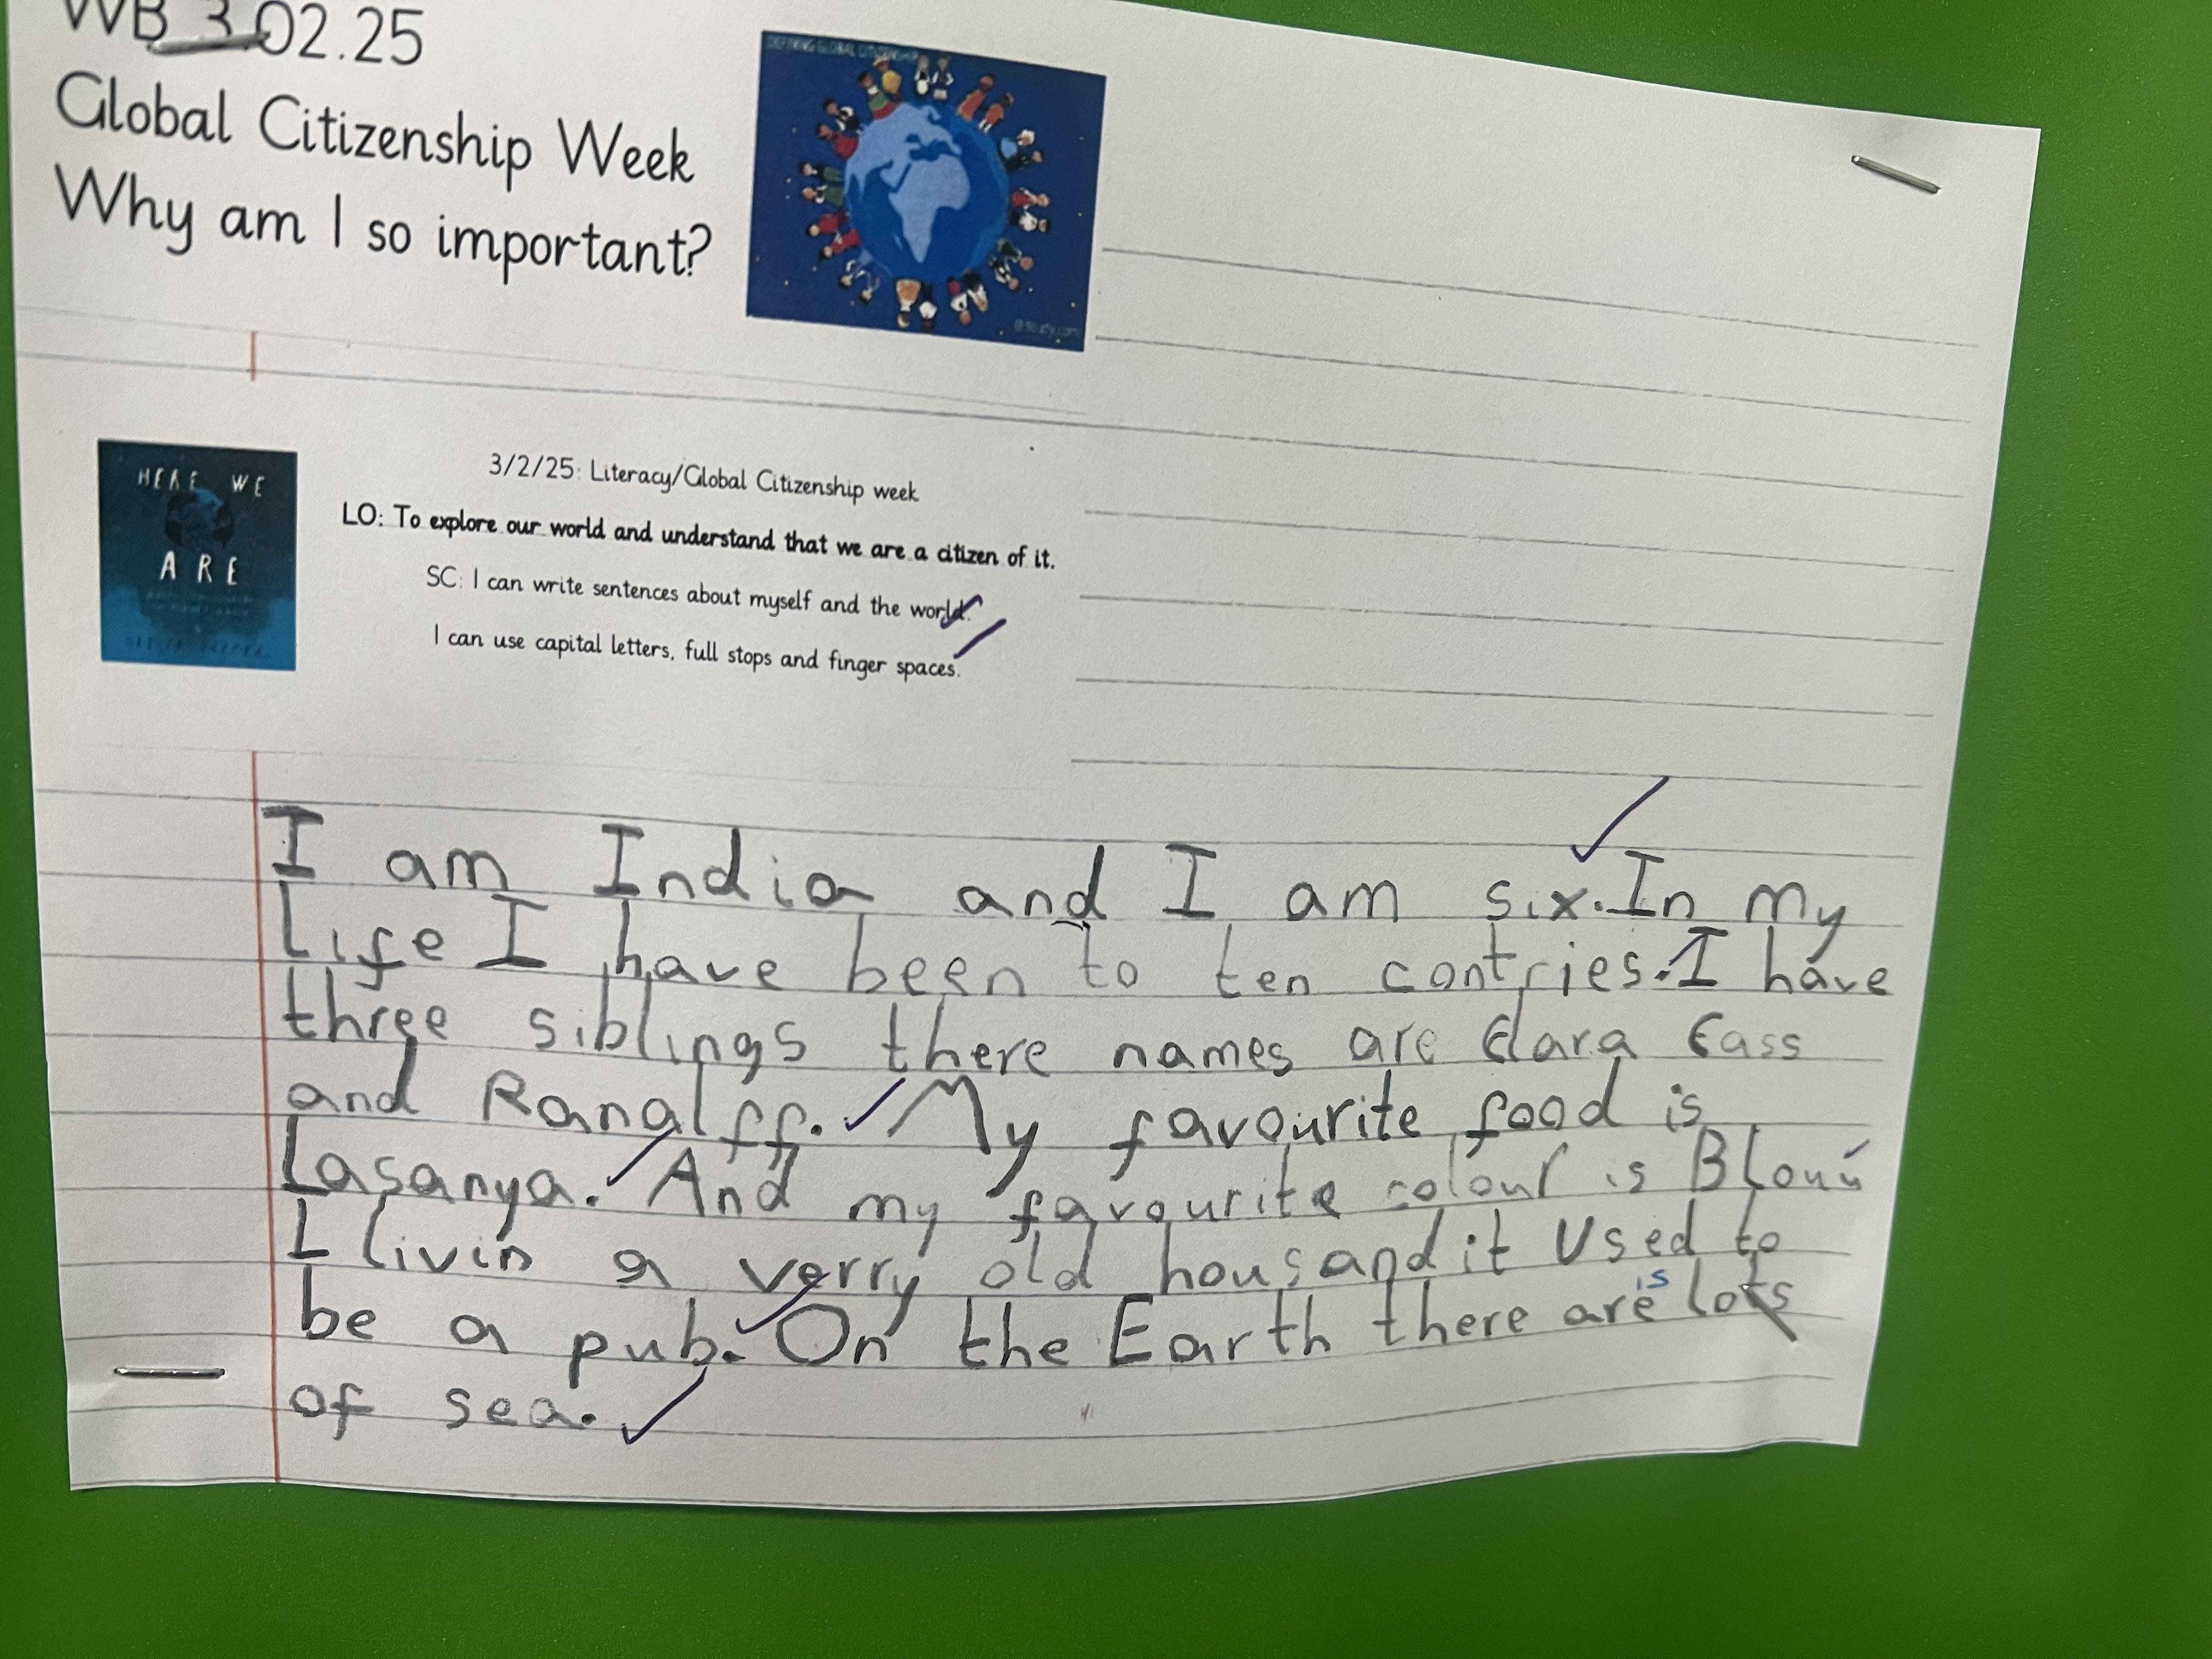 WB 3.02.25
Global Citizenship Week
Why am I so important?
DEFINING GLOBAL CITIZENSHIP
@Study.com
HERE WE
ARE
3/2/25: Literacy/Global Citizenship week
LO: To explore our world and understand that we are a citizen of it.
SC: I can write sentences about myself and the world.
I can use capital letters, full stops and finger spaces.
I am India and I am six. In my
life I have been to ten contries. I have
three siblings there names are Clara Cass
and Ranalff. My favourite food is
Lasanya. And my favourite colour is
I livin a verry old hous and it Used to
be a pub. On the Earth there are is lots
of sea.